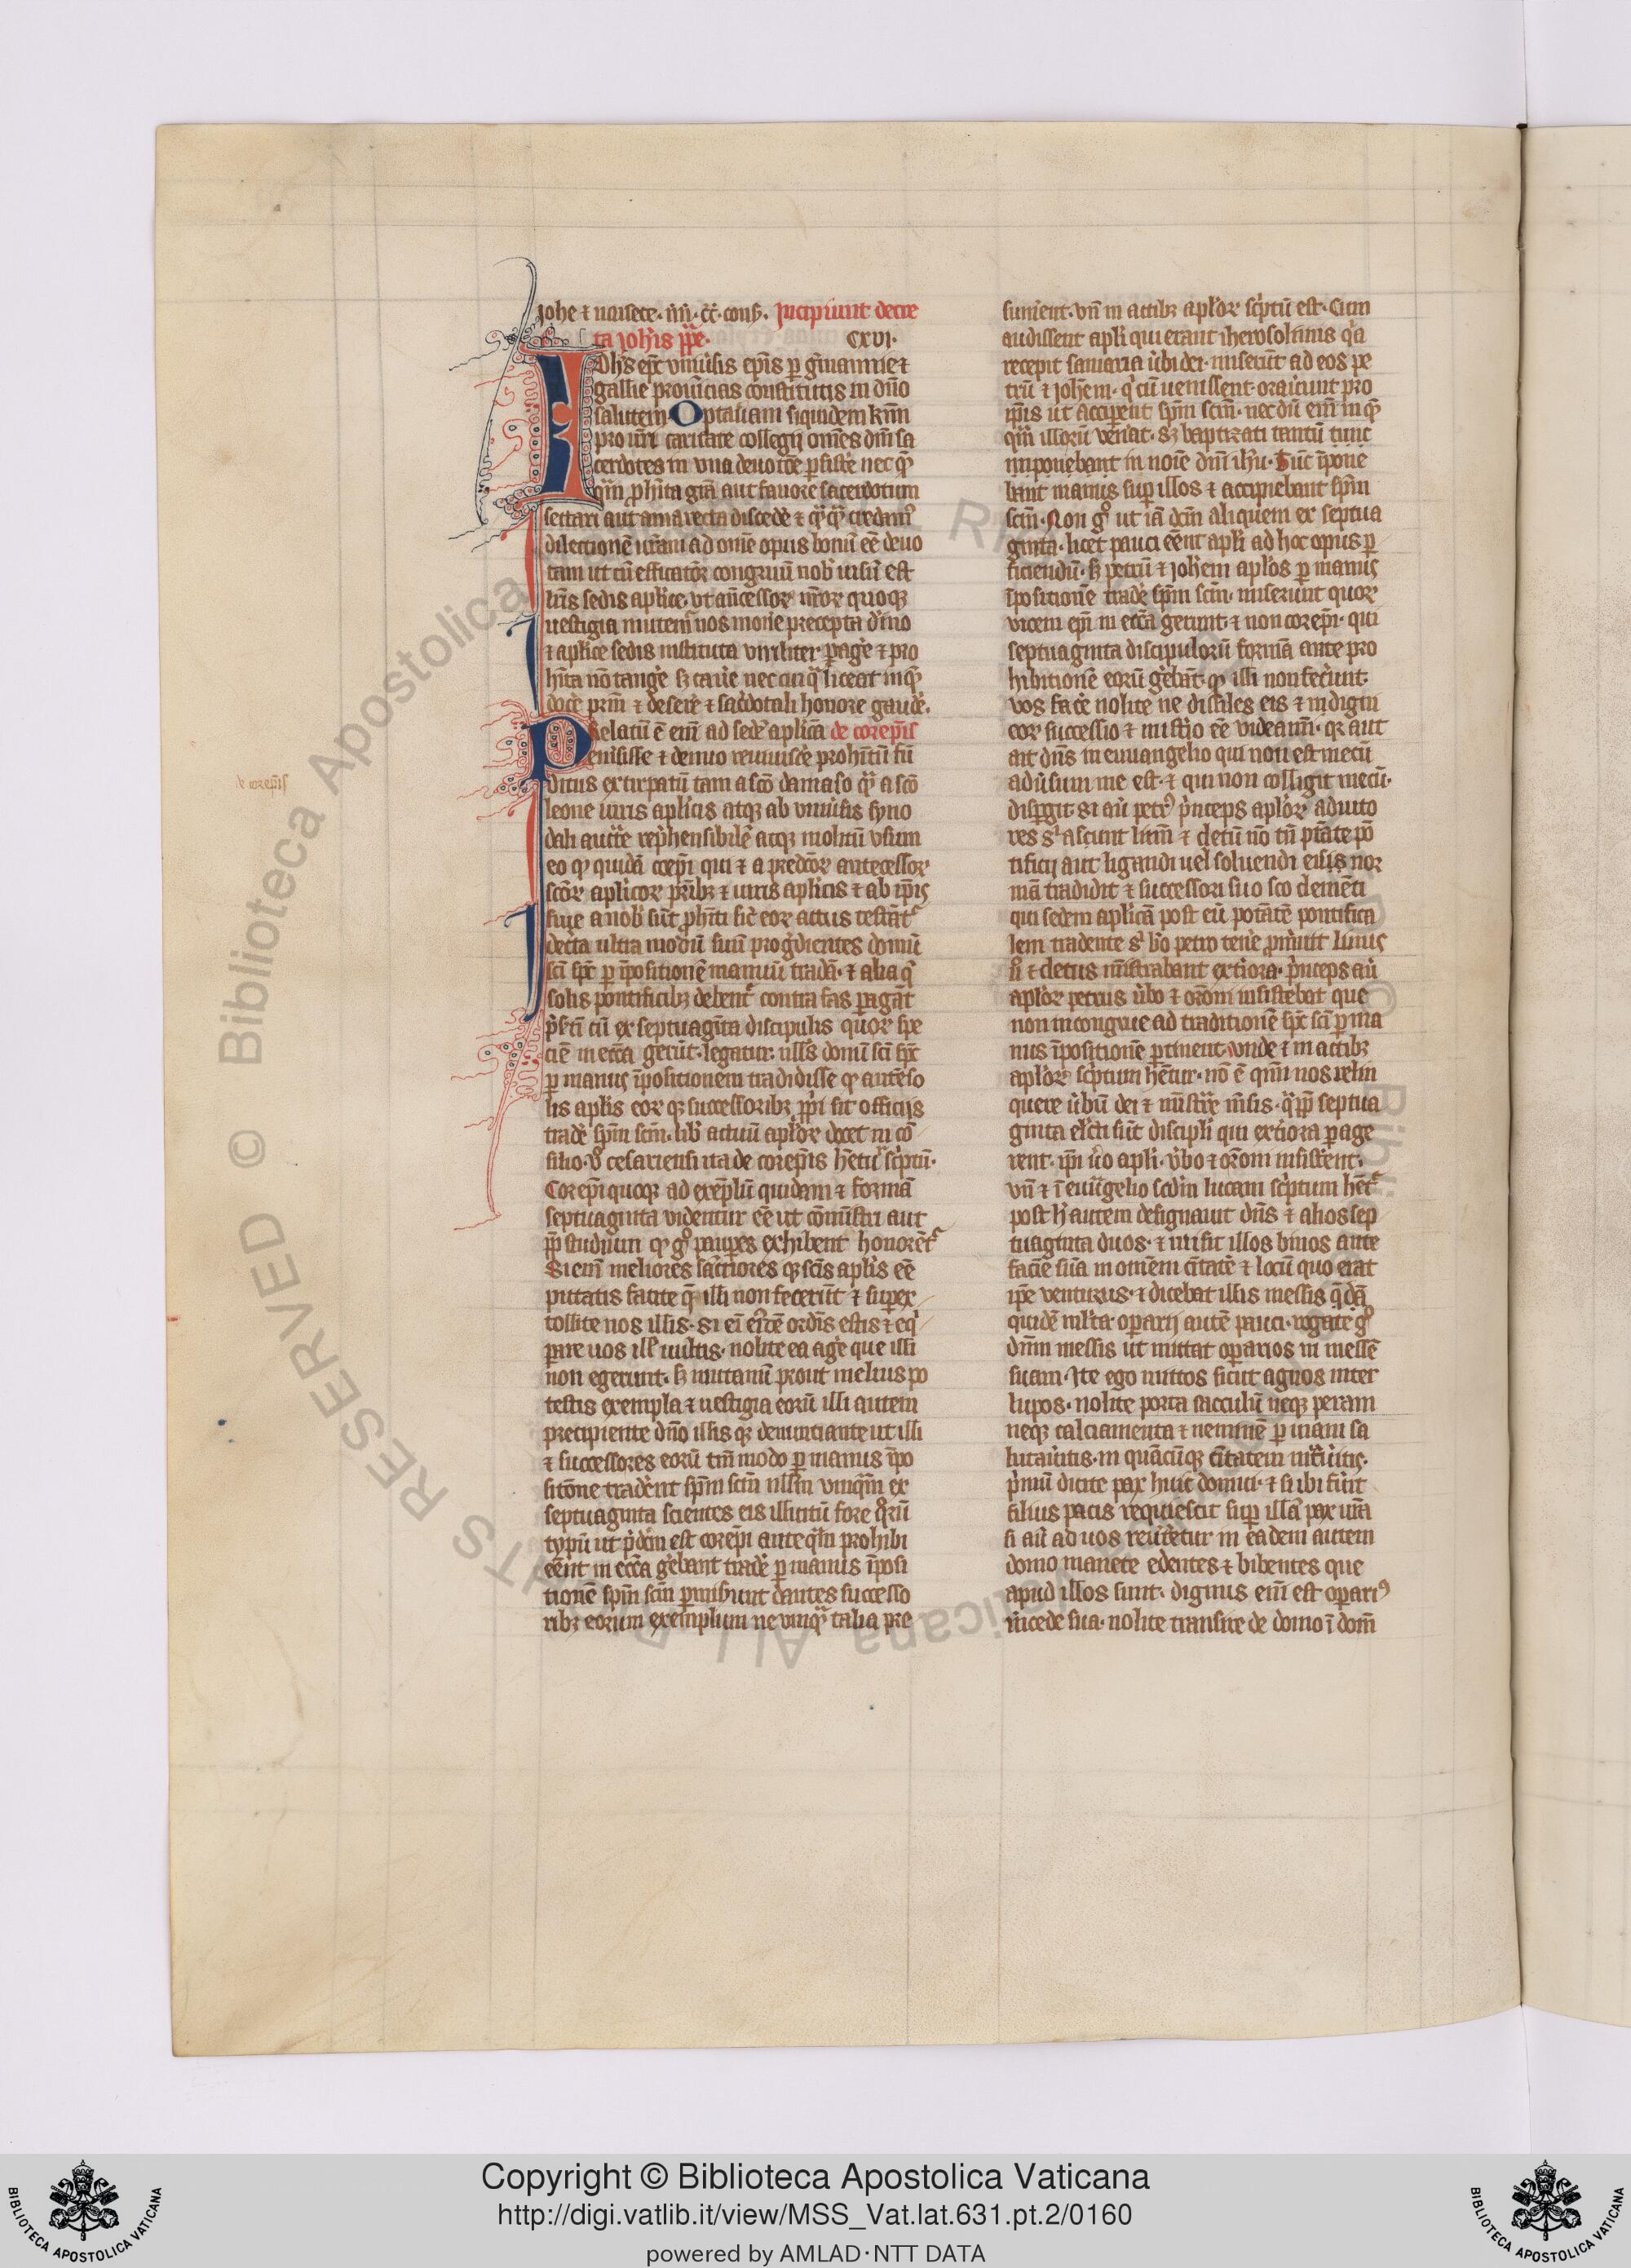 johe ⁊ narsete. ıııı. c̄c̄. cons̄. Incipiunt decre
ta joh̓is p̄p̄e. CXVI.
Ioh̄s ep̄c vniu̓sis ep̄is ꝑ g̓manie ⁊
gallie prouīcias constitutis in dn̄o
salutem. Optabiam siquidem kr̄mi
pro ur̄i caritate collegij om̄es dn̄i sa
cerdotes in vna deuotōe ꝑsiste̓ nec q̄
q̄m ꝓhīta gr̄a aut fauore sacerdotum
sectari aut a uia recta discede̓ ⁊ q̄q̄ credam̓
dilectionē ur̄am ad om̄e opus bonū eē deuo
tam ut cū efficator̓ congruū nob̓ uisū est
lr̄is sedis aplice. vt an̄cessoꝝ nr̄oꝝ quoqꝫ
uestigia mutem̓ uos mone̓ precepta d̓ino
⁊ aplice sedis instituta viriliter ꝑage̓ ⁊ pro
hīta nō tange̓ sꝫ caue̓ nec cuiq̓ liceat inq̄
doce̓ prīn ⁊ desere̓ ⁊ sac̓dotali honore gaude̓.
Relatū ē eni̅ ad sedē aplicā de corep̄is
eniliisse ⁊ denuo reuiuisce̓ prohītū fū
ditus extirpatū tam a sc̄o damaso q̄ a sc̄o
leone uiris aplicis atqꝫ ab vniu̓sis syno
dali auctr̄e rep̄hensibilē atqꝫ inolitū vsum
eo qꝫ quidā corep̄i qui ⁊ a predc̄oꝝ antecessoꝝ
sc̄oꝝ aplicoꝝ pr̄ibꝫ ⁊ uiris aplicis ⁊ ab ip̄is
siue a nob̓ sūt ꝓhīti sic̄ eoꝝ actus testāt̓
decr̄a ultra modū suū prog̓dientes domū
sc̄i sp̄c ꝑ īpositionē manuū tradā. ⁊ alia q̄
solis pontificibꝫ debent̓ contra fas ꝑagāt
p̓s̄ti cū ex septuagīta discipulis quoꝝ spe
ciē in ecc̄a gerūt. legatur. nll̄s domū sc̄i sp̄c
ꝑ manus īpositionem tradidisse qꝫ autē so
lis aplis eoꝝ qꝫ successoribꝫ ꝓpi sit officijs
trade̓ sp̄m scm̄. lib̓ actuū apl̓oꝝ docet in cō
silio. v̓ cesariensi ita de corep̄is hētu̓ sc̓ptū.
Corep̄i quoqꝫ ad exēplū quidam ⁊ formā
septuaginta videntur eē ut cōmīstri aut
ꝓp studium qꝫ g̓ pauꝑes exhibent honorēt̓
Si eni̅ meliores sāctiores qꝫ sc̄is aplis eē
putatis facite q̄ illi non fecerūt ⁊ suꝑex
tollite nos illis. si ei̅ ei̓cē ordīs estis ⁊ eq̄
pare uos ill̓ uultis. nolite ea age̓ que illi
non egerunt. sꝫ imitamī prout melius po
testis exempla ⁊ uestigia eorū illi autem
precipiente dn̄o illis qꝫ denunciante ut illi
⁊ successores eorū tm̄ modo ꝑ manus īpo
sitōne tradērt sp̄m scm̄ nllm̄ vnīqm̄ ex
septuaginta scientes eis illicitū fore q̓rū
typū ut p̓dcm̄ est corep̄i anteq̄m prohibi
eēnt in ecc̄a g̓ebant trade̓ ꝑ manus īposi
tionē sp̄m scm̄ ꝑmis̓unt dantes successo
ribꝫ eorum exemplum ne vnqꝫ talia pre
sumēent. vn̄ in actibꝫ apl̓oꝝ sc̓ptū est. Cum
audissent apl̓i qui erant iherosolimis q̓a
recepit samaria u̓bū dei. miserūt ad eos pe
trū ⁊ joh̄em. q̓ cū uenissent. orau̓unt pro
ip̄is ut acciperent sp̄m scm̄. nec dū eni̅ in q̄
q̄m illorū ven̓at. sꝫ baptizati tantū tunc
imponebant in noīe dn̄i ih̄u. Tūc īpone
bant manus suꝑ illos ⁊ accipiebant sp̄m
scm̄. Non g̓ ut iā dcm̄ aliquem ex septua
ginta. licet pauci eēnt apl̓i ad hoc opus ꝑ
ficiendū. sꝫ petrū ⁊ joh̄em apl̓os ꝑ manus
īpositionē trade̓ sp̄m scm̄. miserunt quoꝝ
vicem ep̄i in ecc̄a gerunt. ⁊ non corep̄i. qui
septuaginta discipulorū formā ante pro
hibitionē eorū g̓ebāt. qꝫ illi non fec̓unt.
vos face̓ nolite ne dissiles eis ⁊ indigni
eoꝝ successio ⁊ missio eē videamī. qꝛ aut
ait dn̄s in euuangelio qui non est mecū
adu̓sum me est. ⁊ qui non colligit mecū.
disꝑgit. si au̓ petr̓ p̓nceps apl̓oꝝ adiuto
res s̓ asciunt linū ⁊ cletū nō tn̄ ptāte pō
tificij aut ligandi uel soluendi eis nor
mā tradidit ⁊ successori suo sc̄o clemēti
qui sedem aplicā post eū potāte pontifica
lem tradente s̓ b̓o petro tene̓ ꝓm̓uit Linus
u̓ ⁊ cletus mīstrabant ext̓iora. p̓nceps au̓
apl̓oꝝ petrus u̓bo ⁊ or̄oni insistebat que
non incongrue ad traditionē sp̄c sc̄i ꝑ ma
nus īpositionē ꝑtinent. vnde ⁊ in actibꝫ
apl̓oꝝ sc̓ptum hētur. nō ē q̄m nos relin
quere u̓bū dei ⁊ mīstr̄e mēsis. q̓ ꝓp̄ septua
ginta el̄cti sūt discipl̓i qui ext̓iora ꝑage
rent. ip̄i u̓o apl̓i. v̓bo ⁊ or̄oni insist̓ent.
vn̄ ⁊ ī euūgelio scd̄m lucam sc̓ptum hēt̓
post h̓ autem designauit dn̄s ⁊ alios sep
tuaginta duos. ⁊ misit illos binos ante
faciē suā in om̄em c̄itatē ⁊ locū quo erat
ip̄e venturus. ⁊ dicebat illis messis q̄dā
quidē mlta. oꝑarij autē pauci. rogate g̓
dn̄m messis ut mittat oꝑarios in messē
suam. Ite ego mittos sicut agnos inter
lupos. nolite porta sacculū neqꝫ peram
neqꝫ calciamenta ⁊ neminē ꝑ uiam sa
lutau̓itis. in quācūqꝫ c̄itatem intrau̓itis.
p̓mū dicite pax huic domui. ⁊ si ibi fu̓it
filius pacis requiescit suꝑ illā pax ur̄a
si aū ad uos reu̓tetur in eadem autem
domo manete edentes ⁊ bibentes que
apud illos sunt. dignus eni̅ est oꝑari⁹
m̓cede sua. nolite transire de domo ī domū
de corep̄is
Copyright © Biblioteca Apostolica Vaticana
http://digi.vatlib.it/view/MSS_Vat.lat.631.pt.2/0160
powered by AMLAD·NTT DATA
BIBLIOTECA APOSTOLICA VATICANA
BIBLIOTECA APOSTOLICA VATICANA